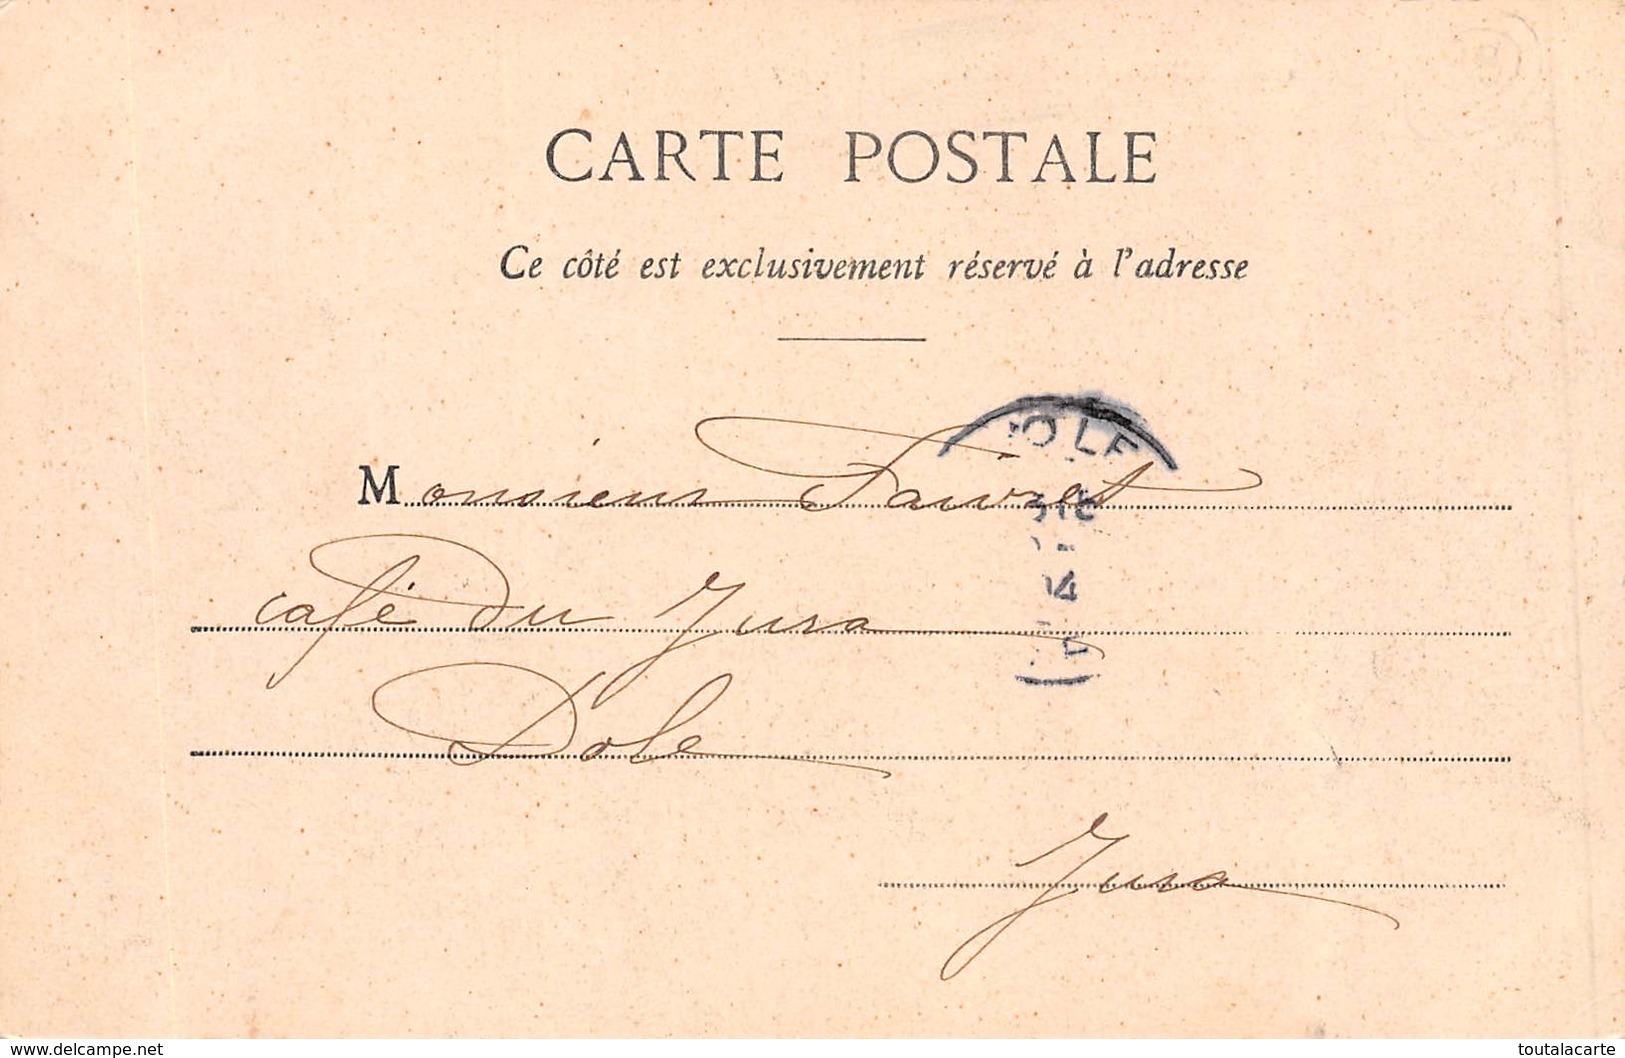 CARTE POSTALE
Ce côté est exclusivement réservé à l'adresse
OLE
Monsieur Faivret
04
café du Jura
Dole
Jura
www.delcampe.net
toutalacarte